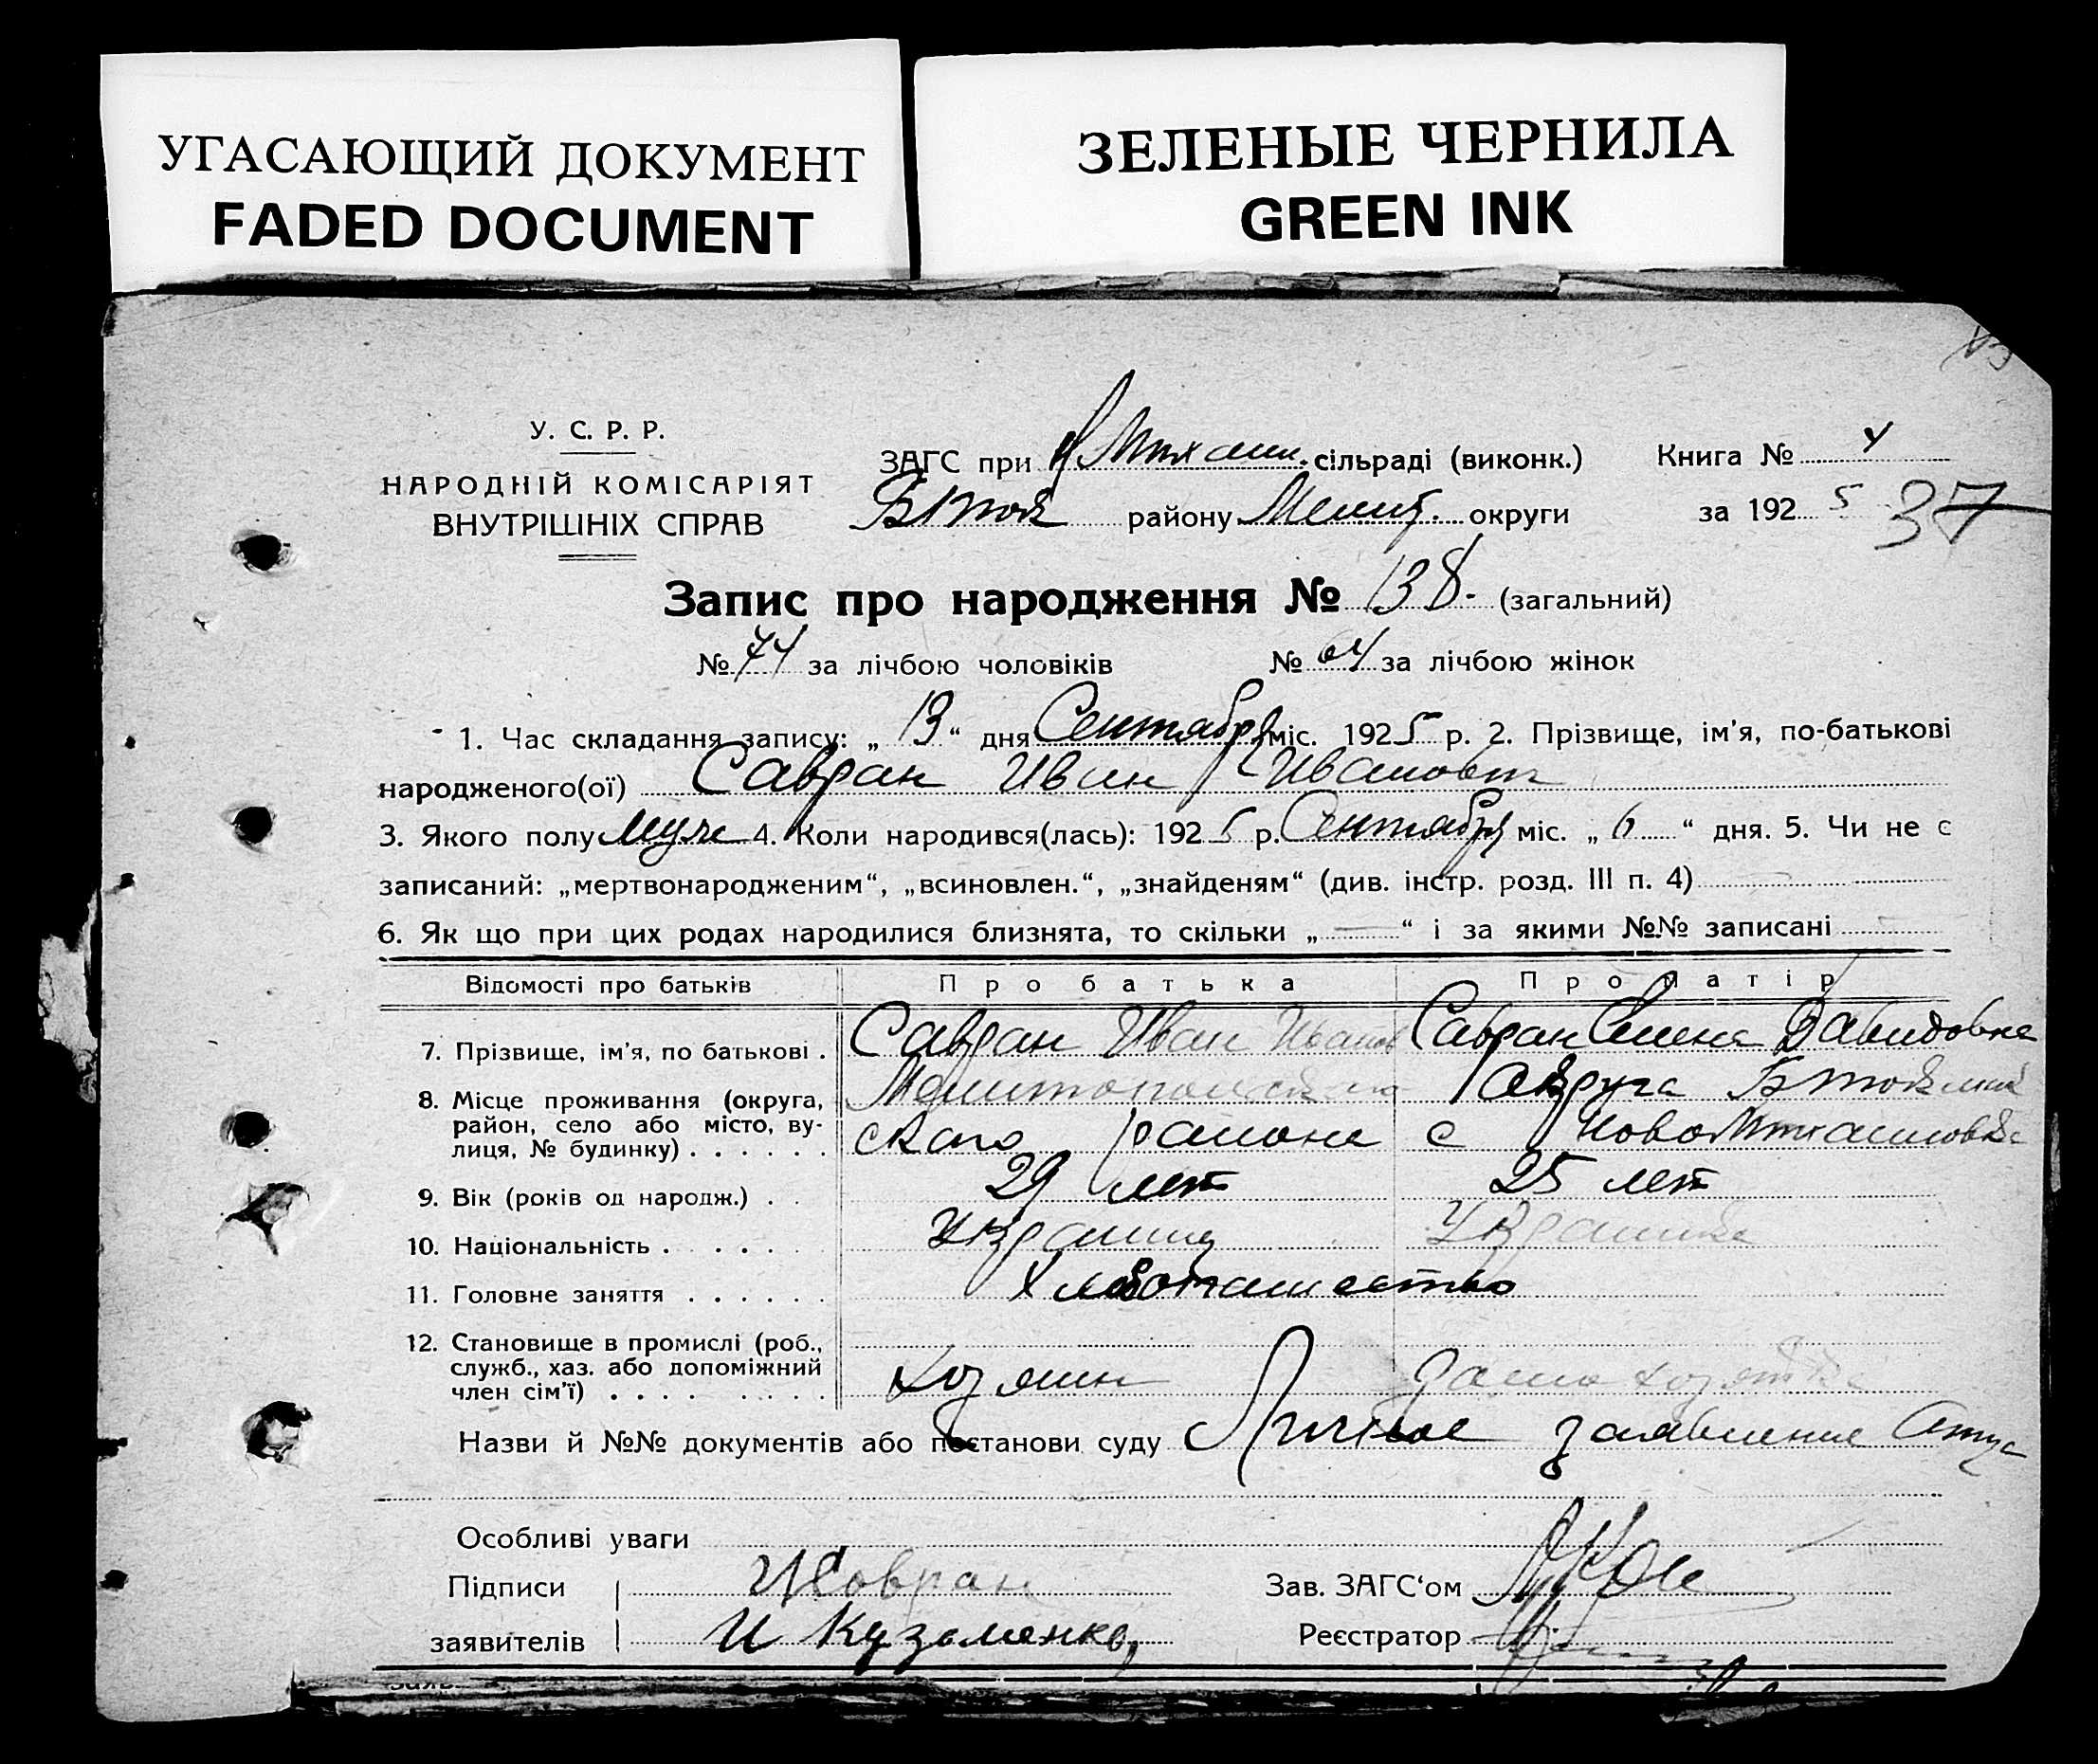 УГАСАЮЩИЙ ДОКУМЕНТ
FADED DOCUMENT
ЗЕЛЕНЫЕ ЧЕРНИЛА
GREEN INK
У. С. Р. Р.
НАРОДНІЙ КОМІСАРІЯТ
ВНУТРІШНІХ СПРАВ
ЗАГС при сільраді (виконк.) Книга № 4
району Мелит. округи за 192 5 37
Запис про народження № 138. (загальний)
№ 74 за лічбою чоловіків № 64 за лічбою жінок
1. Час складання запису: „ 13 “ дня Сентября міс. 192 5 р. 2. Прізвище, ім'я, по-батькові
народженого(ої) Савран Иван Иванович
3. Якого полу муж 4. Коли народився(лась): 192 5 р. Сентября міс. „ 6 “ дня. 5. Чи не є
записаний: „мертвонародженим“, „всиновлен.“, „знайденям“ (див. інстр. розд. III п. 4)
6. Як що при цих родах народилися близнята, то скільки „ — “ і за якими №№ записані —
Відомості про батьків Про батька Про матір
7. Прізвище, ім'я, по батькові . Савран Иван Иванов Савран Елена Давидовна
8. Місце проживання (округа, Мелитопольского округа
район, село або місто, ву- ского района с Ново
лиця, № будинку) . . . . . .
9. Вік (років од народж.) . . 29 лет 25 лет
10. Національність . . . . . Украинец Украинка
11. Головне заняття . . . . . . Хлебопашество
12. Становище в промислі (роб.,
служб., хаз. або допоміжний хозяин
член сім'ї) . . . . . . . .
Назви й №№ документів або постанови суду Личное заявление Отца
Особливі уваги
Підписи И Савран Зав. ЗАГС‘ом
заявителів И Кузьменко, Реєстратор